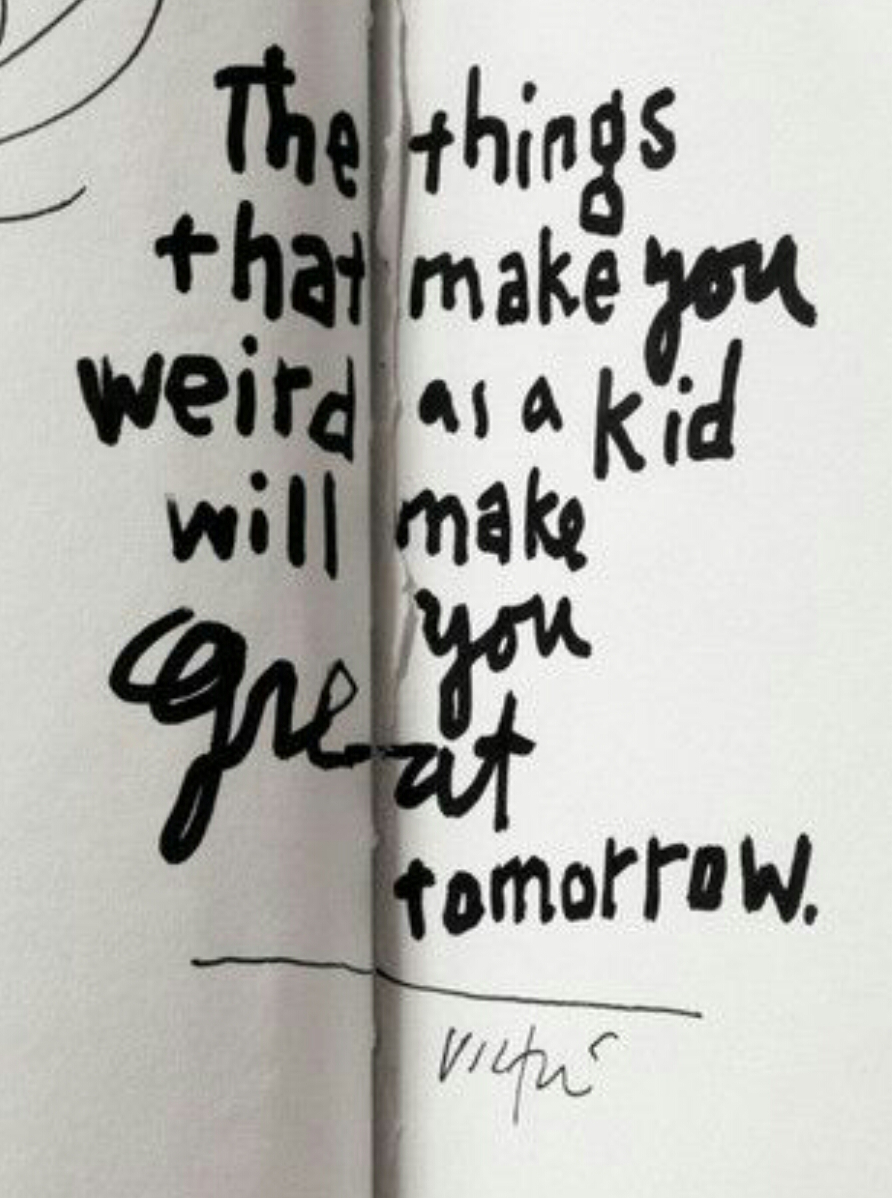 The things
that make you
weird as a kid
will make
you
great
tomorrow.